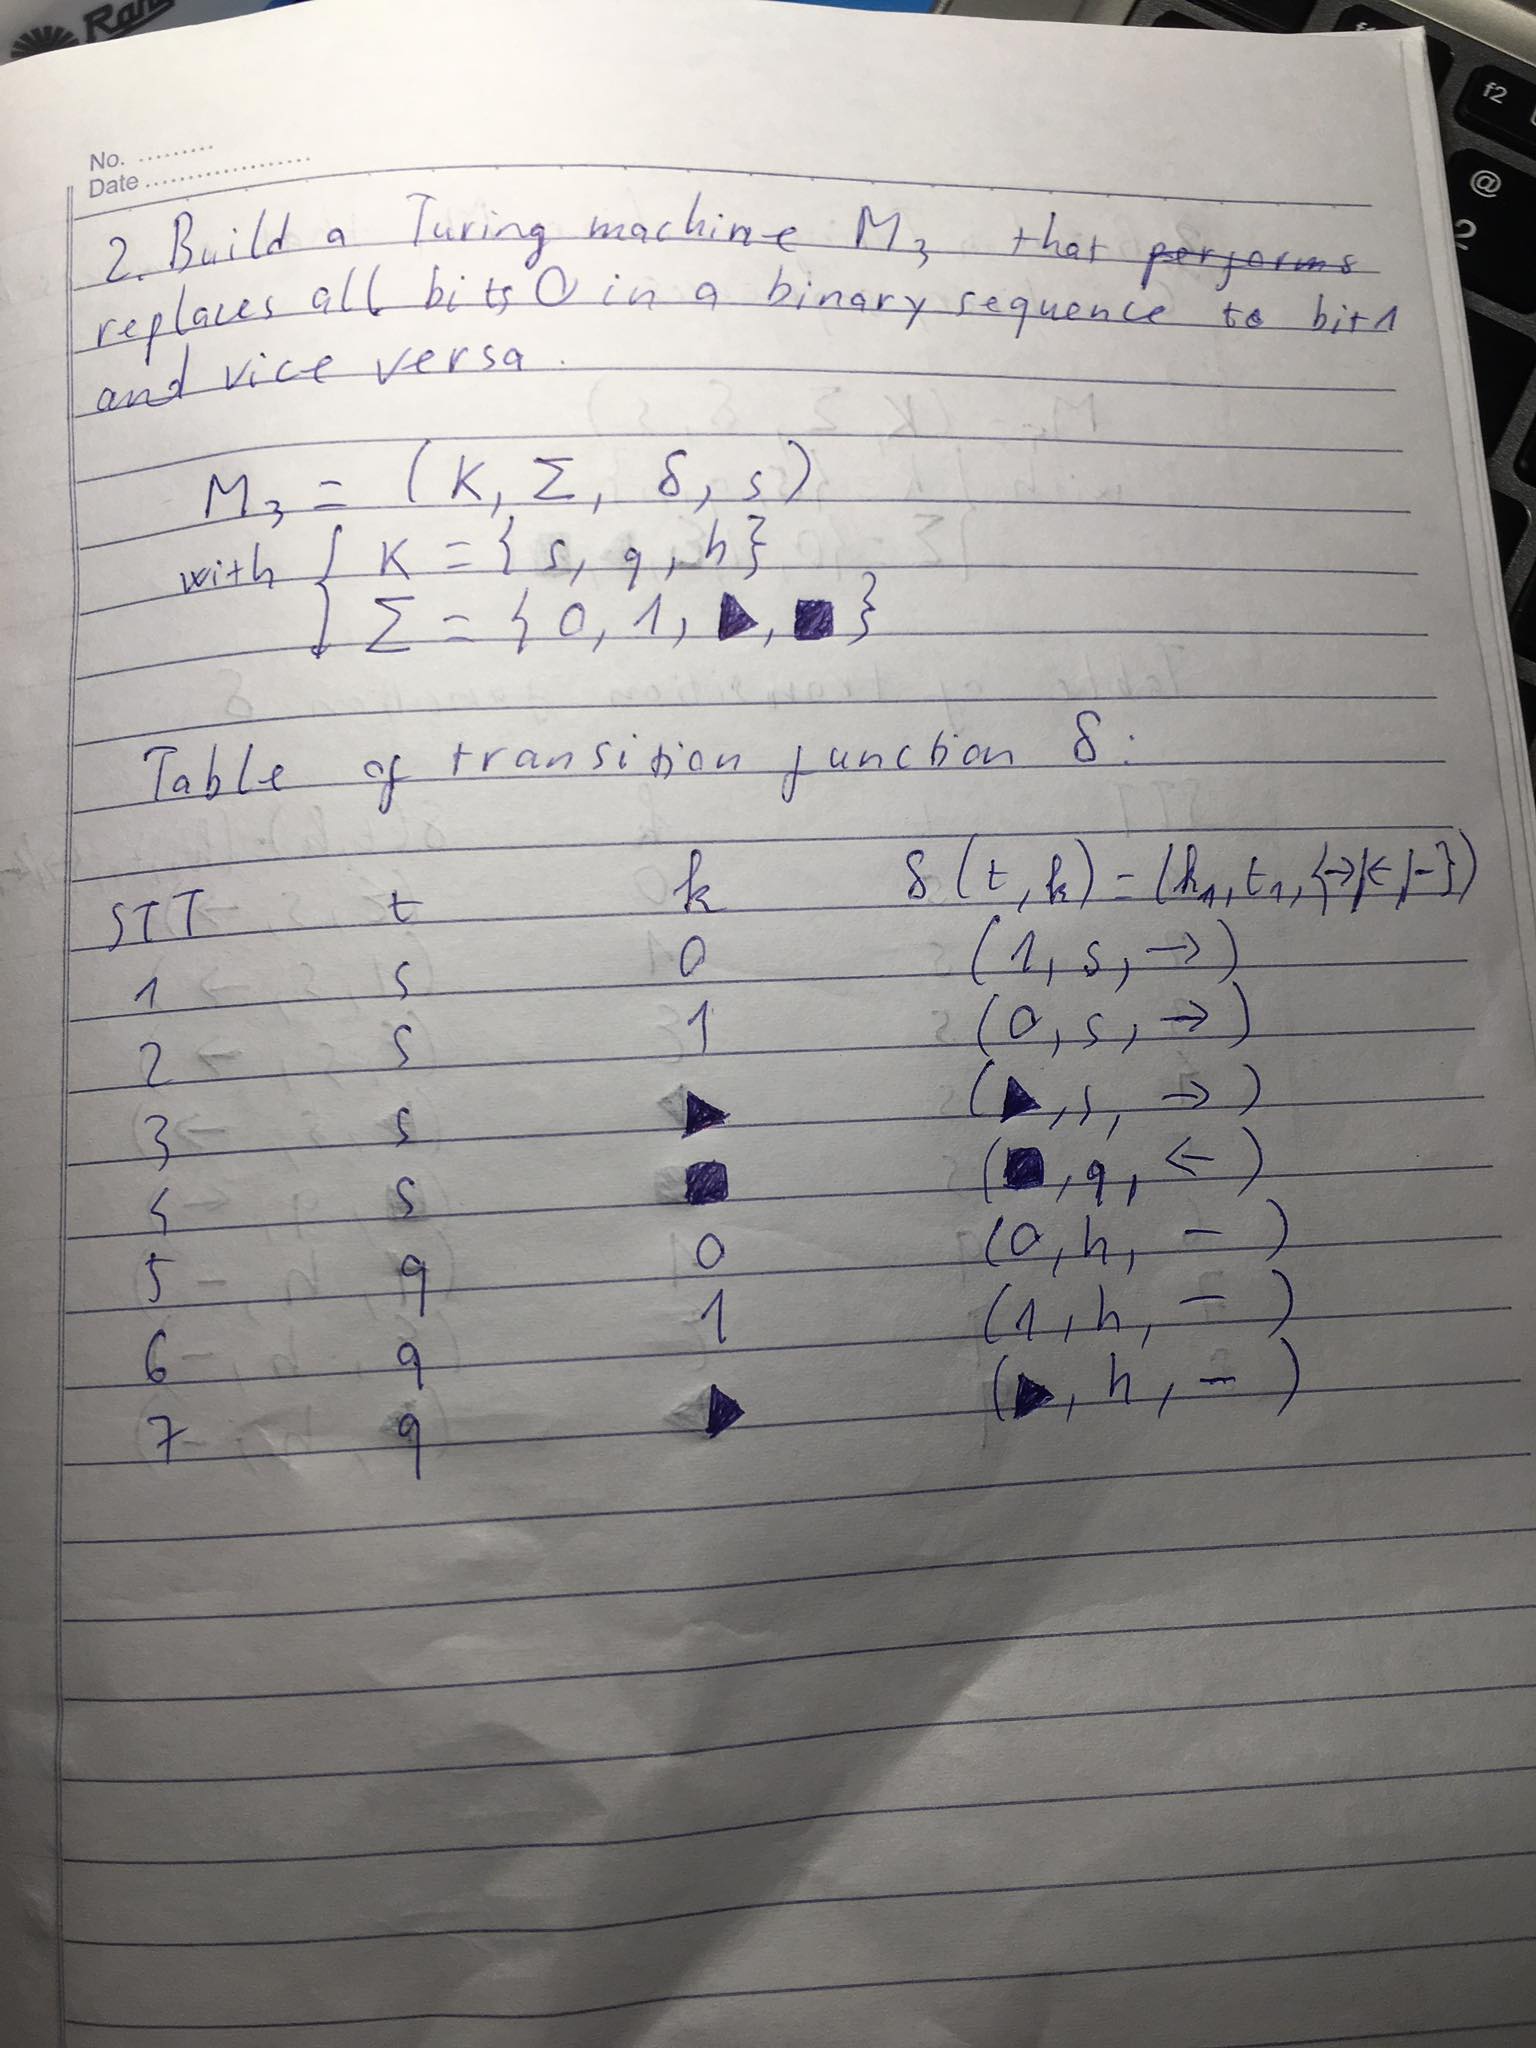 No. .........
Date ..................
2. Build a Turing machine M₃ that performs
replaces all bits 0 in a binary sequence to bit 1
and vice versa.
M₃ = (K, Σ, δ, s)
with { K = {s, q, h}
Σ = {0, 1, ▶, ■}
Table of transition function δ:
STT t k δ(t, k) = (k₁, t₁, {→|←|-})
1 s 0 (1, s, →)
2 s 1 (0, s, →)
3 s ▶ (▶, s, →)
4 s ■ (■, q, ←)
5 q 0 (0, h, -)
6 q 1 (1, h, -)
7 q ▶ (▶, h, -)
f2
@
2